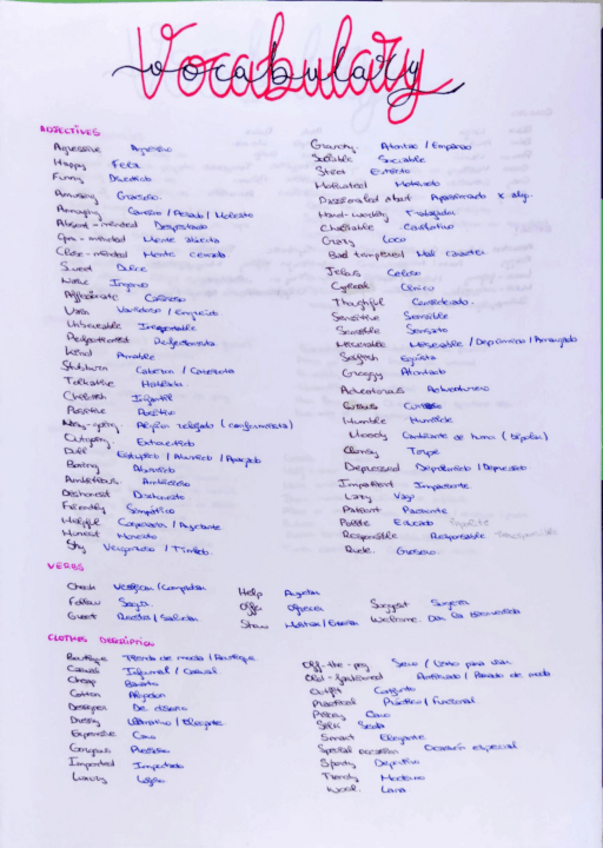 Vocabulary
vocabulary
ADJECTIVES
Agressive Agresivo
Happy Feliz
Funny Divertido
Amusing Gracioso.
Annoying / Pesado / Molesto
Absent-minded Despistado
Open-minded Mente abierta
Close-minded Mente cerrada
Sweet Dulce
Naive Ingenuo
Affectionate Cariñoso
Vain Vanidoso / Engreído
Unbearable Insoportable
Perfectionist Perfeccionista.
Kind Amable
Stubborn Cabezon / Cabezota
Talkative Hablador
Childish Infantil
Positive Positivo
Easy-going. Alguien relajado (conformista)
Outgoing. Extrovertido
Dull Estúpido / Aburrido / Apagado
Boring Aburrido
Ambitious. Ambicioso
Dishonest Deshonesto
Friendly Simpático
Helpful Cooperador / Ayudante
Honest Honesto
Shy Vergonzoso / Tímido.
Grumpy.
Sociable Sociable
Strict Estricto
Motivated Motivado
Passionated about Apasionado x algo.
Hard-working Trabajador
Charitable Caritativo
Crazy Loco
Bad tempered Mal caracter
Jelous Celoso
Cynical Cínico
Thoughful Considerado.
Sensitive Sensible
Sensible Sensato
Miserable Miserable / Deprimido / Amargado
Selfish Egoísta
Groggy Atontado
Adventorous Aventurero
Curious Curioso
Humble Humilde
Moody Cambiante de humor (bipolar)
Clumsy Torpe
Depressed Deprimido / Depresivo
Impatient Impaciente.
Lazy Vago
Patient Paciente
Polite Educado Impolite
Responsible Responsable Irresponsible
Rude. Grosero.
VERBS
Check Verificar / Comprobar
Follow Seguir.
Greet Recibir / Saludar.
Help Ayudar
Offer Ofrecer
Show Mostrar / Enseñar
Suggest Sugerir
Welcome. Dar la bienvenida
CLOTHES DESCRIPTION
Boutique Tienda de moda / Boutique
Casual Informal / Casual
Cheap Barato
Cotton Algodon
Designer De diseño
Dressy Llamativo / Elegante.
Expensive Caro
Gorgeous Precioso
Imported Importado
Luxury Lujoso
Off-the-peg / Listo para usar
Old-fashioned Anticuado / Pasado de moda
Outfit Conjunto
Practical Práctico / funcional
Pricey Caro
Silk Seda
Smart Elegante
Special occasion Ocasión especial
Sporty Deportivo
Trendy Moderno
Wool. Lana